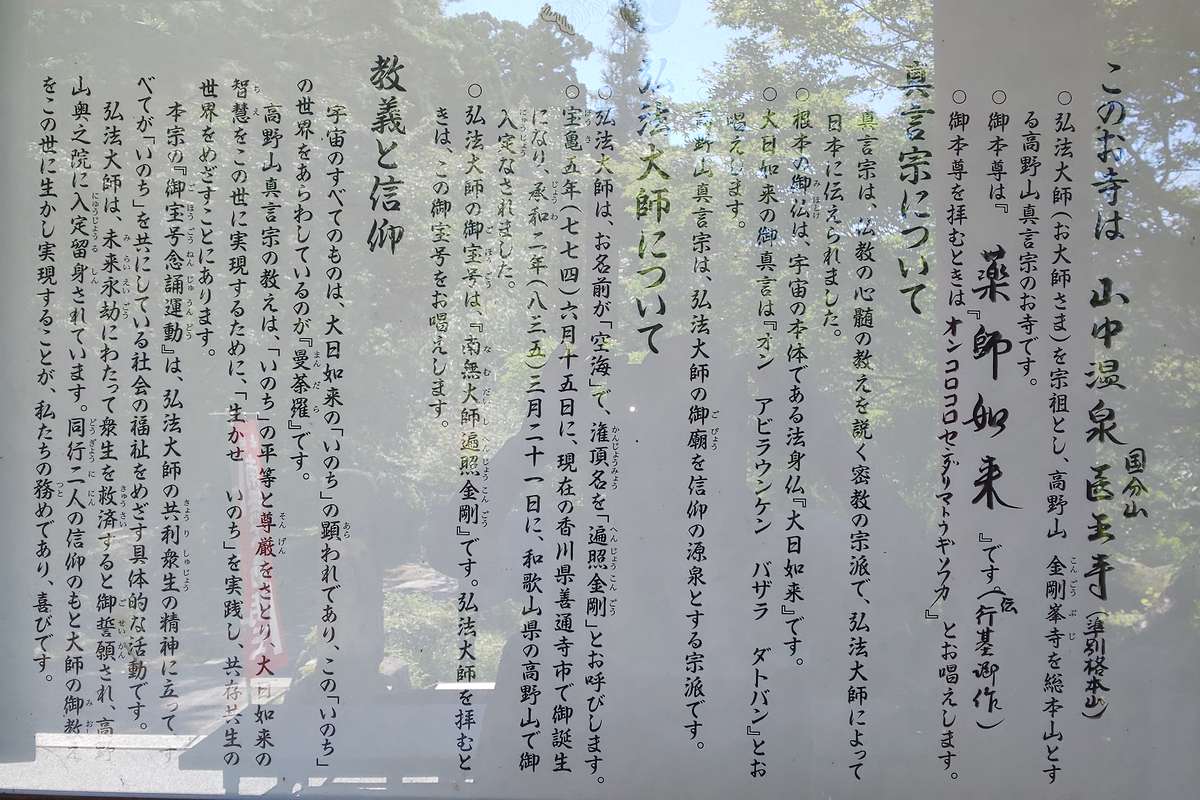 このお寺は 山中温泉 国分山 医王寺(準別格本山)
○弘法大師(お大師さま)を宗祖とし、高野山 金剛峯寺を総本山とす
る高野山真言宗のお寺です。
○御本尊は『薬師如来』です(伝行基御作)
○御本尊を拝むときは『オンコロコロセンダリマトウギソワカ』とお唱えします。
真言宗について
真言宗は、仏教の心髄の教えを説く密教の宗派で、弘法大師によって
日本に伝えられました。
○根本の御仏は、宇宙の本体である法身仏『大日如来』です。
○大日如来の御真言は『オン アビラウンケン バザラ ダトバン』とお
唱えします。
高野山真言宗は、弘法大師の御廟を信仰の源泉とする宗派です。
弘法大師について
○弘法大師は、お名前が「空海」で、潅頂名を「遍照金剛」とお呼びします。
○宝亀五年(七七四)六月十五日に、現在の香川県善通寺市で御誕生
になり、承和二年(八三五)三月二十一日に、和歌山県の高野山で御
入定なされました。
○弘法大師の御宝号は、『南無大師遍照金剛』です。弘法大師を拝むと
きは、この御宝号をお唱えします。
教義と信仰
宇宙のすべてのものは、大日如来の「いのち」の顕われであり、この「いのち」
の世界をあらわしているのが『曼荼羅』です。
高野山真言宗の教えは、「いのち」の平等と尊厳をさとり、大日如来の
智慧をこの世に実現するために、「生かせ いのち」を実践し、共存共生の
世界をめざすことにあります。
本宗の『御宝号念誦運動』は、弘法大師の共利衆生の精神に立って、す
べてが「いのち」を共にしている社会の福祉をめざす具体的な活動です。
弘法大師は、未来永劫にわたって衆生を救済すると御誓願され、高野
山奥之院に入定留身されています。同行二人の信仰のもと大師の御教え
をこの世に生かし実現することが、私たちの務めであり、喜びです。